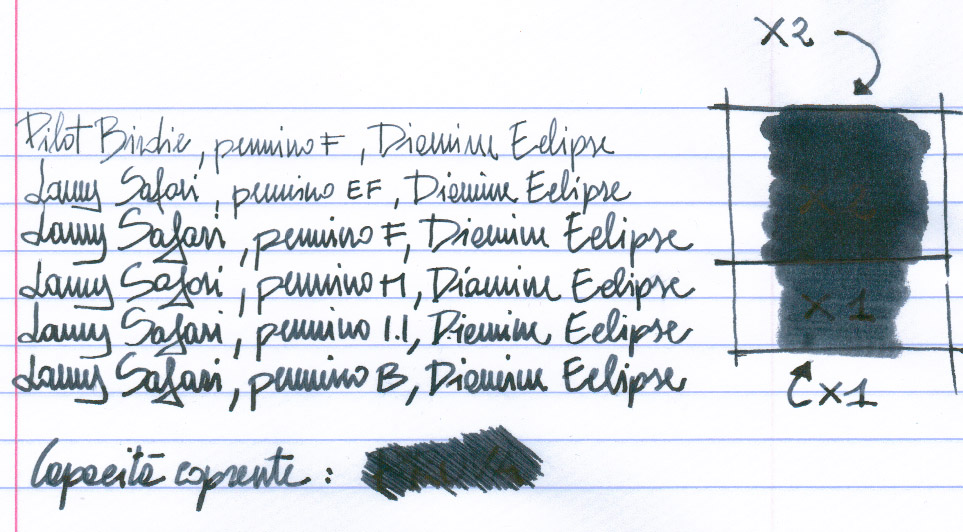 X2
Pilot Birdie, pennino F, Diamine Eclipse
Lamy Safari, pennino EF, Diamine Eclipse
Lamy Safari, pennino F, Diamine Eclipse
Lamy Safari, pennino M, Diamine Eclipse
X1
Lamy Safari, pennino 1.1, Diamine Eclipse
Lamy Safari, pennino B, Diamine Eclipse
X1
Capacità coprente: